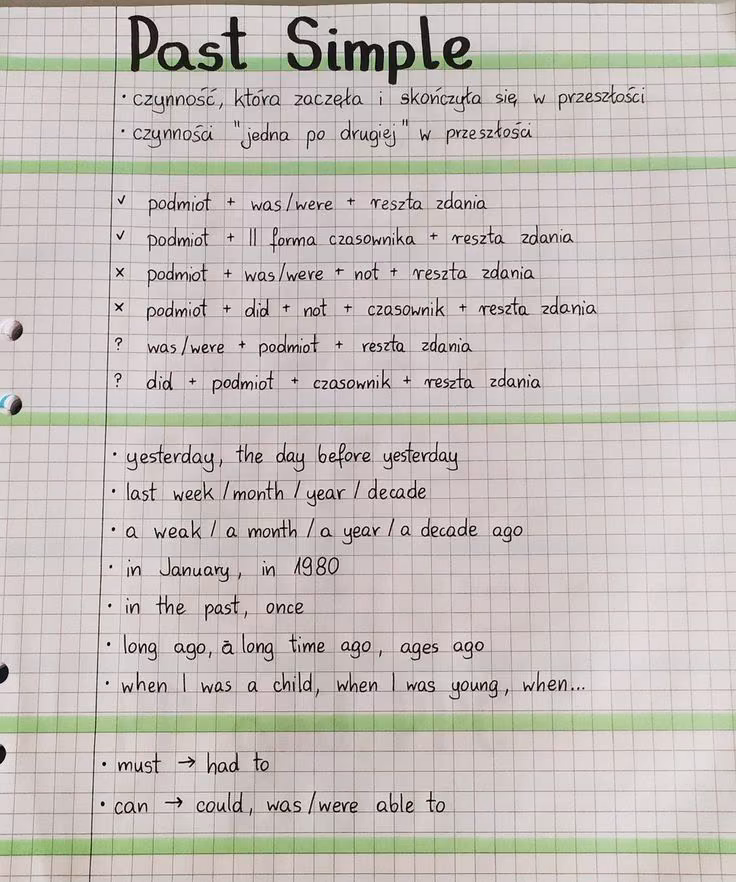 Past Simple
• czynność, która zaczęła i skończyła się w przeszłości
• czynności "jedna po drugiej" w przeszłości
✓ podmiot + was/were + reszta zdania
✓ podmiot + II forma czasownika + reszta zdania
x podmiot + was/were + not + reszta zdania
x podmiot + did + not + czasownik + reszta zdania
? was/were + podmiot + reszta zdania
? did + podmiot + czasownik + reszta zdania
• yesterday, the day before yesterday
• last week / month / year / decade
• a weak / a month / a year / a decade ago
• in January, in 1980
• in the past, once
• long ago, a long time ago, ages ago
• when I was a child, when I was young, when...
• must → had to
• can → could, was/were able to